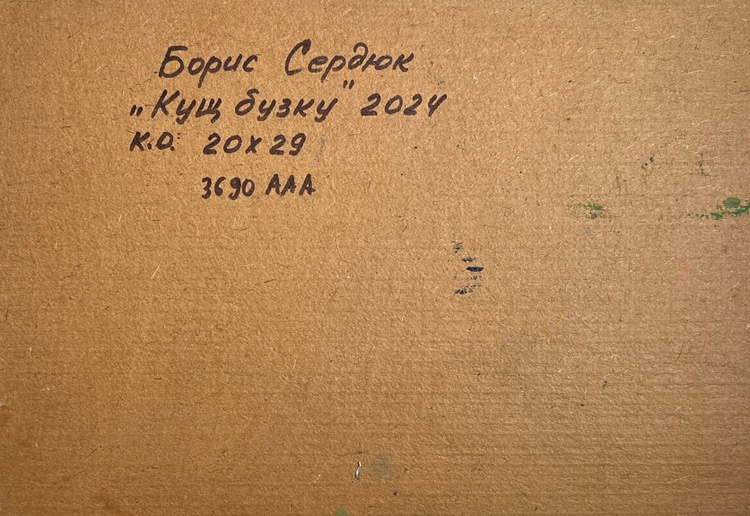 Борис Сердюк
„Кущ бузку" 2024
к.о. 20х29
3690 ААА